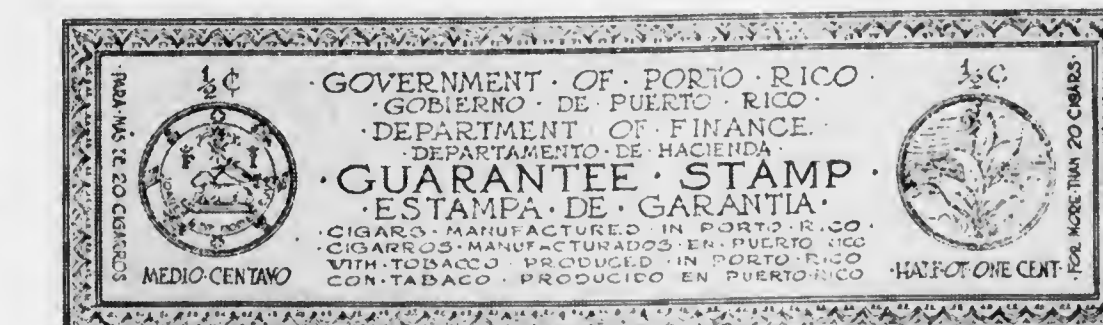 PARA·MAS DE 20 CIGARROS
½ ¢
F I
MEDIO·CENTAVO
·GOVERNMENT · OF · PORTO · RICO ·
·GOBIERNO · DE · PUERTO · RICO·
·DEPARTMENT · OF · FINANCE·
·DEPARTAMENTO·DE·HACIENDA·
·GUARANTEE · STAMP ·
·ESTAMPA·DE·GARANTIA·
·CIGARS·MANUFACTURED·IN PORTO·RICO·
·CIGARROS·MANUFACTURADOS·EN·PUERTO RICO
WITH·TOBACCO·PRODUCED·IN PORTO·RICO
CON·TABACO·PRODUCIDO EN PUERTO·RICO
½ ¢
·HALF·OF·ONE CENT·
·FOR MORE THAN 20 CIGARS·